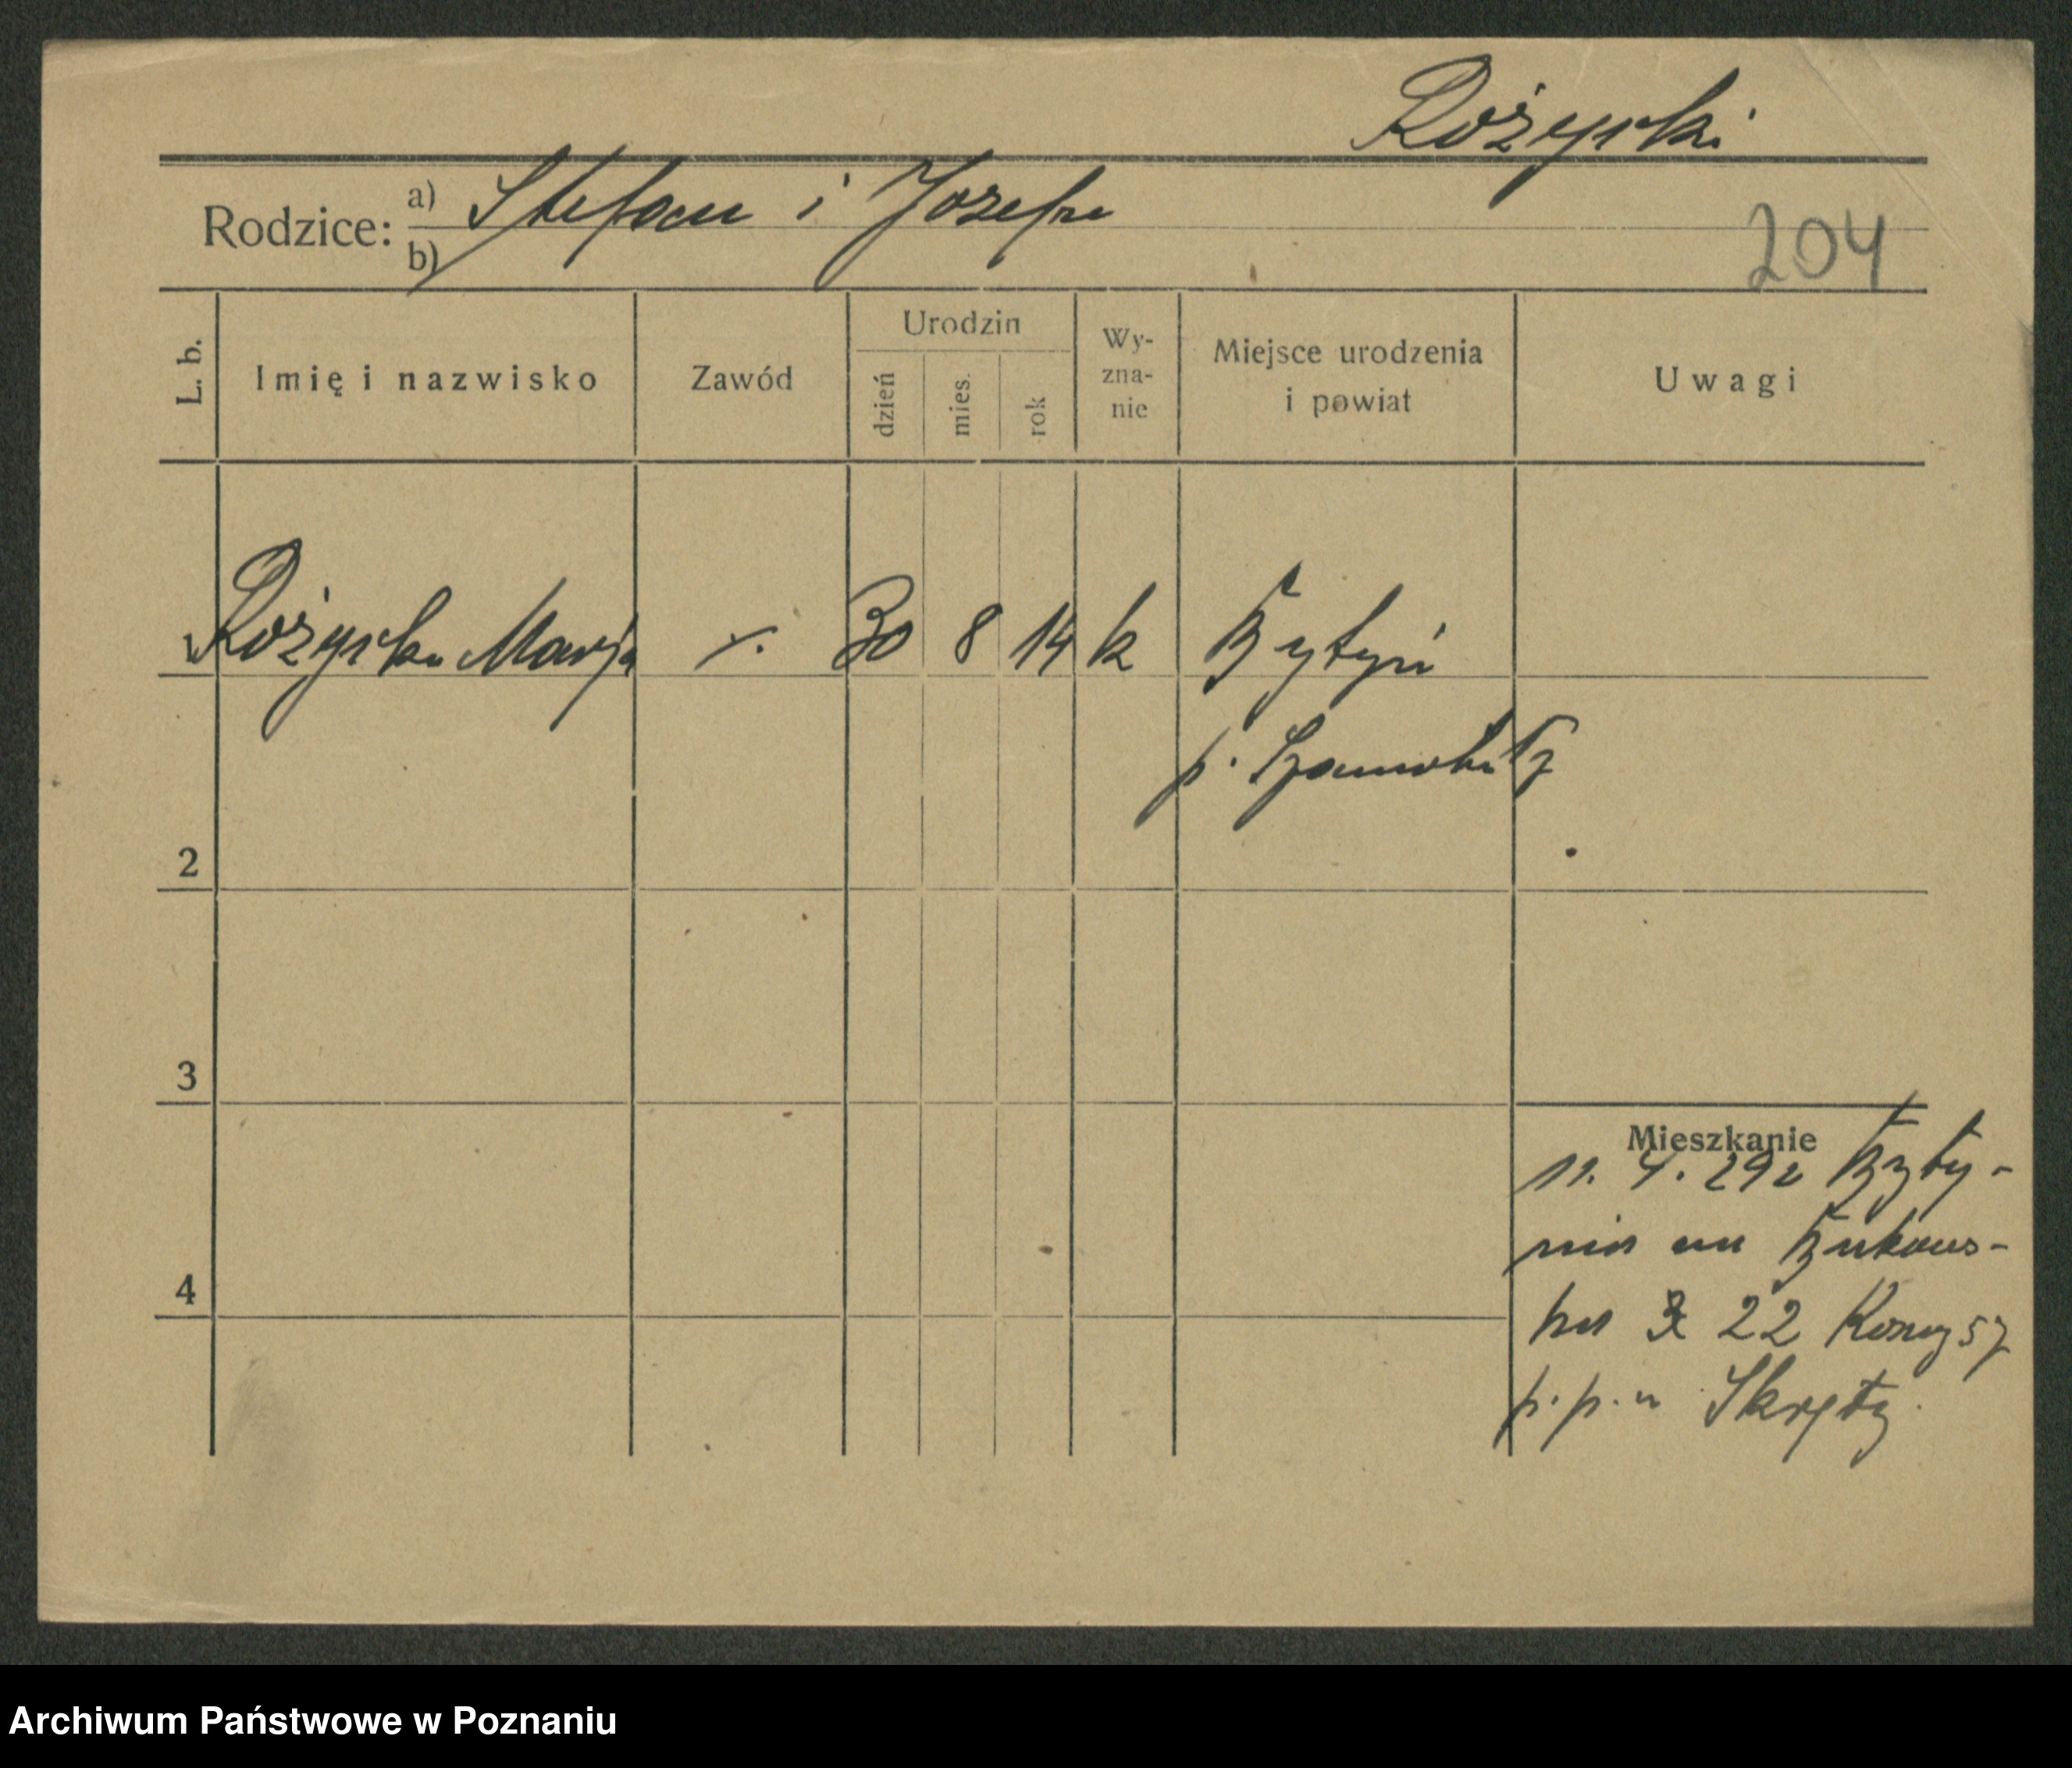 Różyski
Rodzice: a) Stefan i Józefa
b)
204
L. b. Imię i nazwisko Zawód Urodzin dzień mies. rok Wy-zna-nie Miejsce urodzenia i powiat Uwagi
1 Różyska Marja ·/. 30 8 14 k Bytyń
p. Szamotuły
2
3
Mieszkanie
11. 4. 29 z Byty-
nia na Bukows-
ka 22
4
p. p. u Skręty.
Archiwum Państwowe w Poznaniu